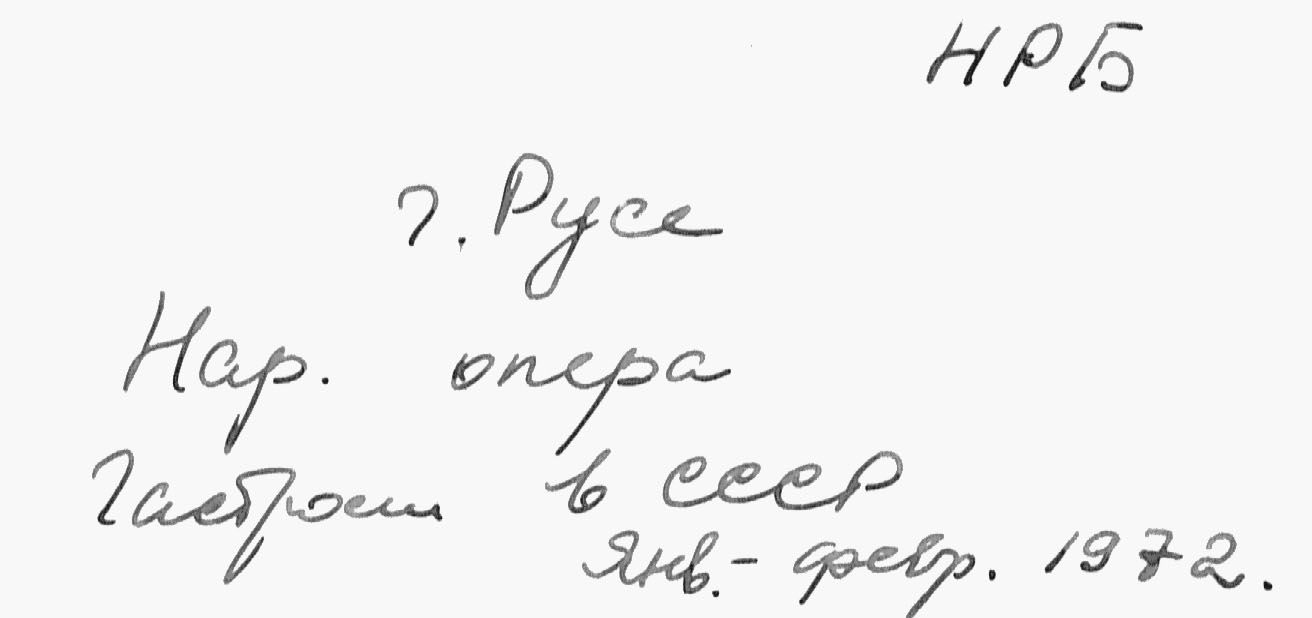 НРБ
г. Русе
Нар. опера
Гастроли в СССР
Янв.- февр. 1972.